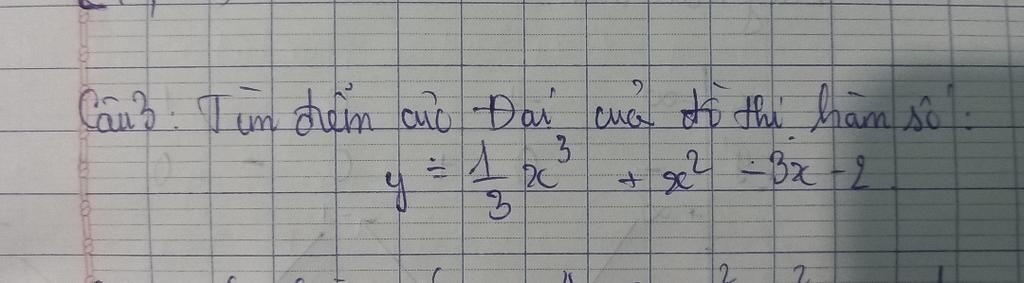 Câu 3: Tìm điểm cực Đại của đồ thị hàm số:
y = \frac{1}{3}x^3 + x^2 - 3x - 2